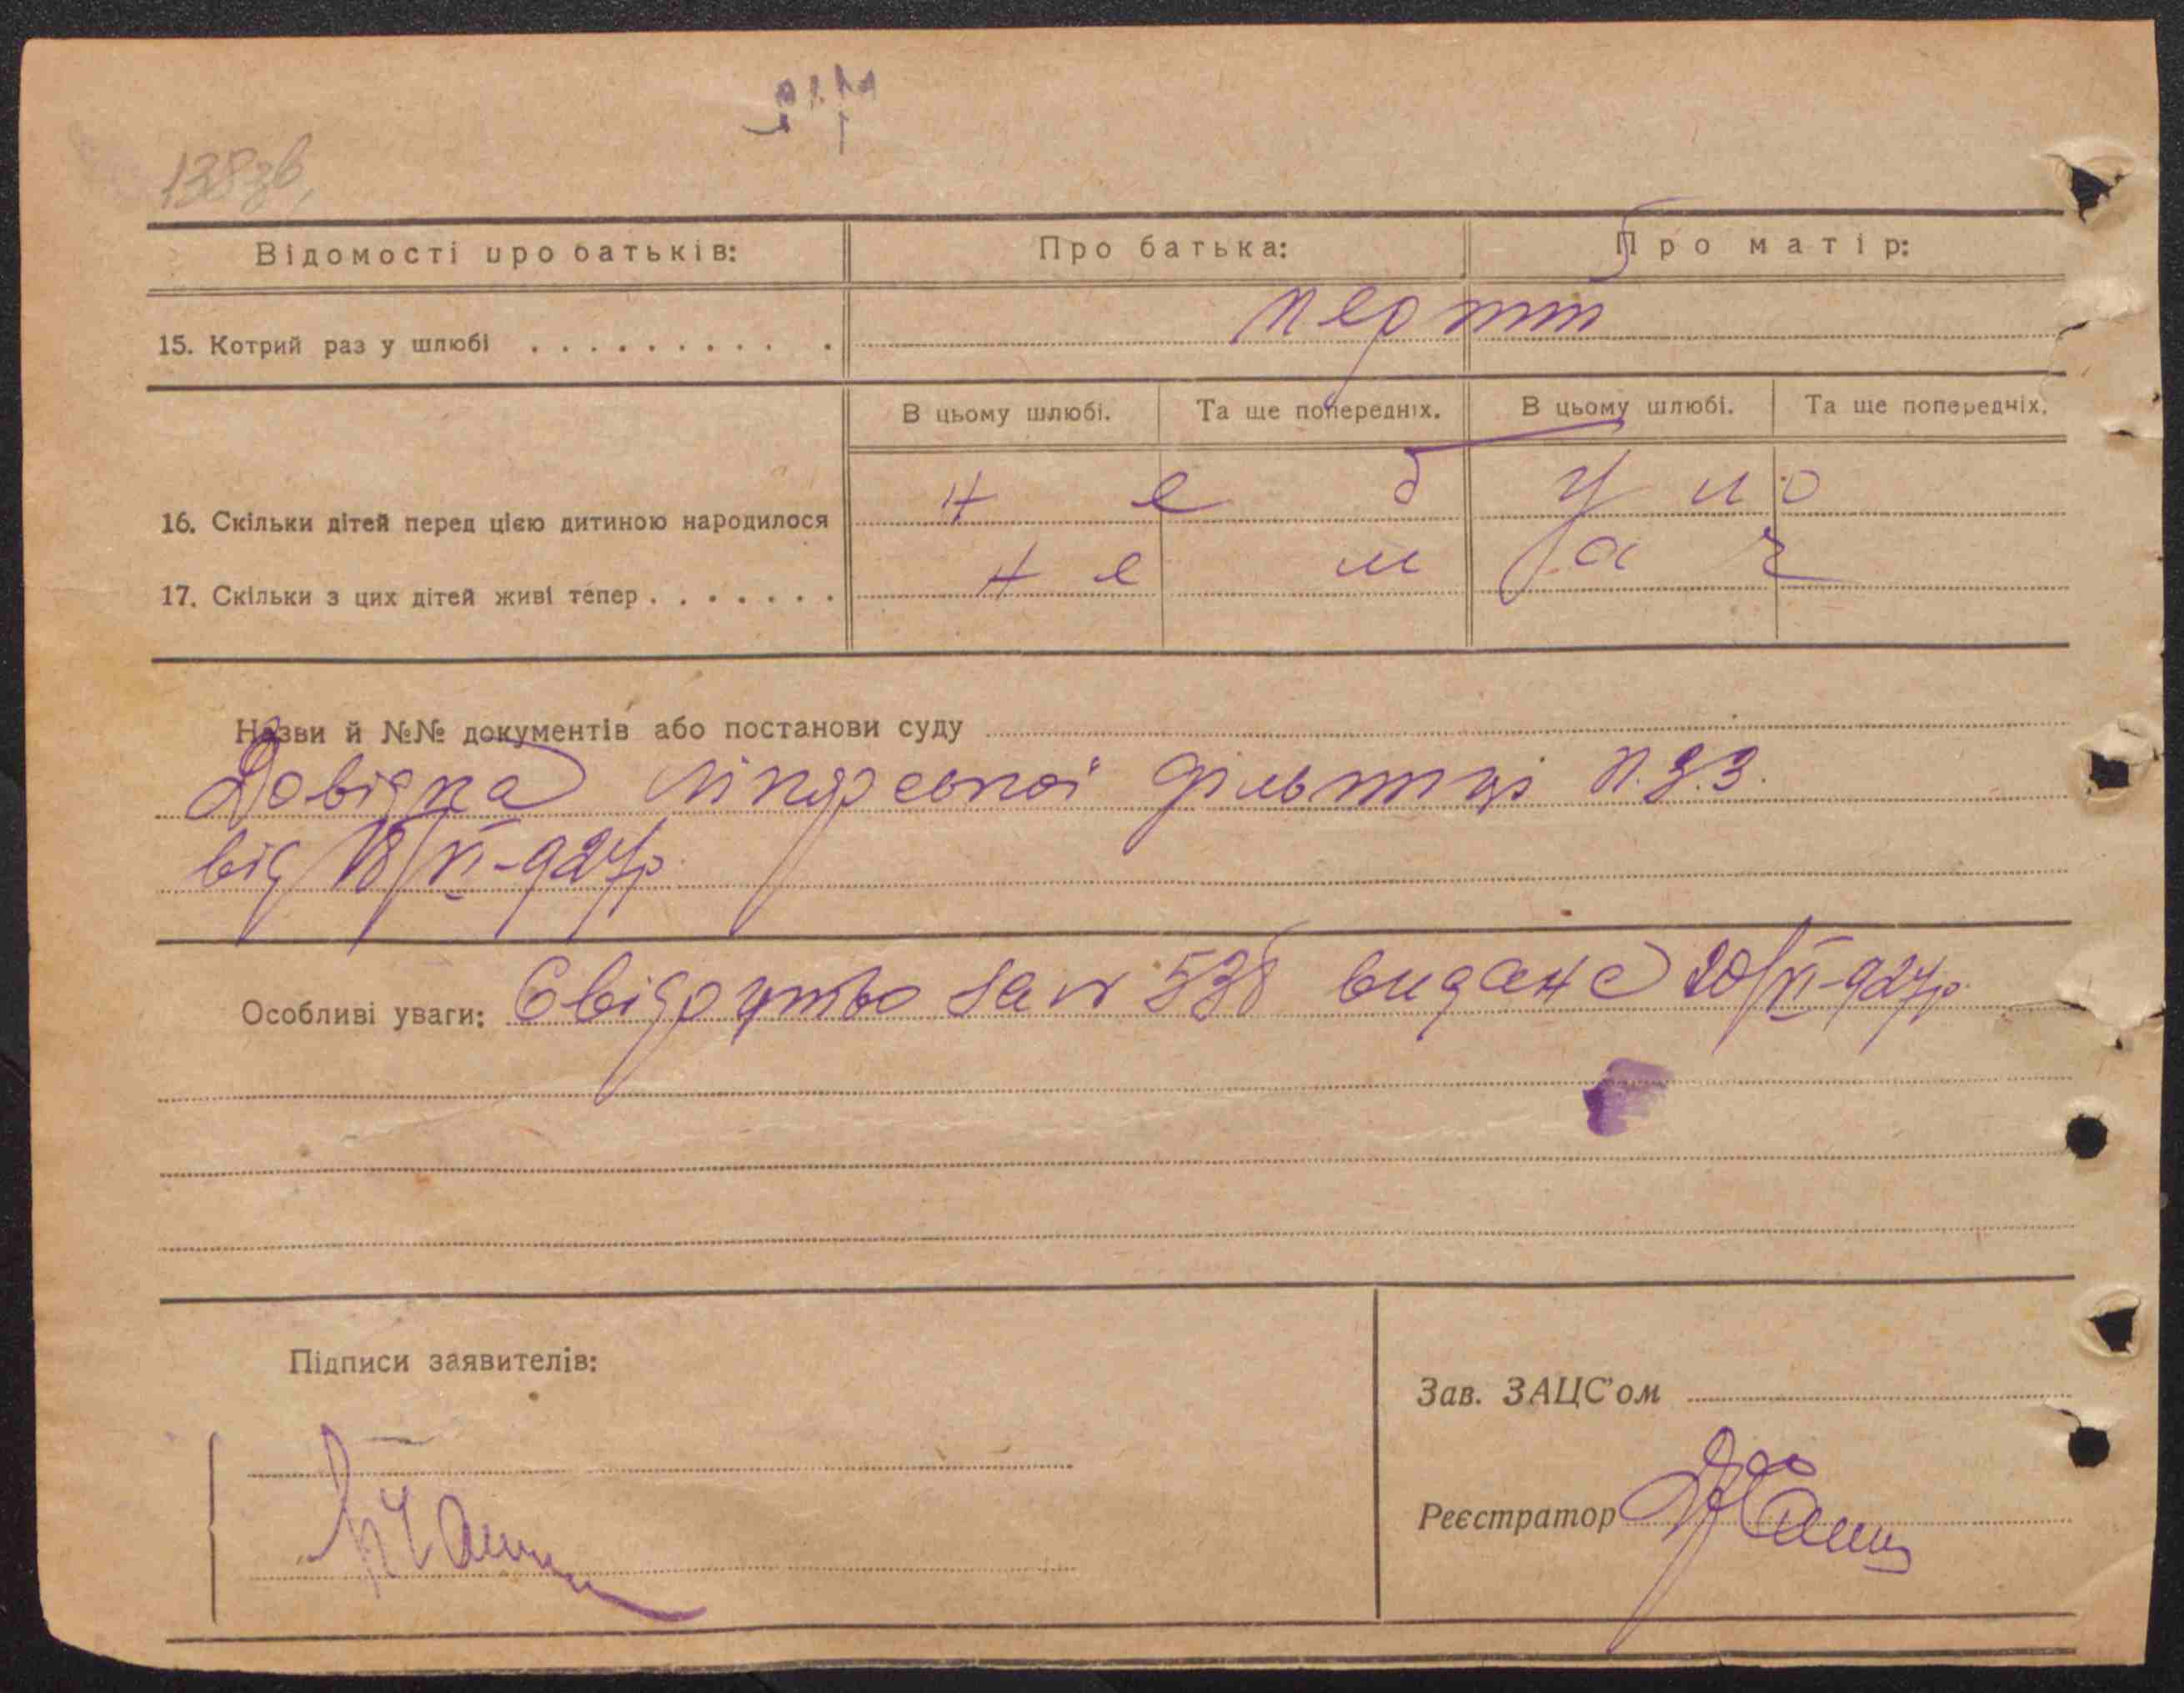 138зв.
Відомості про батьків: Про батька: Про матір:
15. Котрий раз у шлюбі . . . . . . . . . . .
В цьому шлюбі. Та ще попередніх. В цьому шлюбі. Та ще попередніх.
16. Скільки дітей перед цією дитиною народилося не було
17. Скільки з цих дітей живі тепер . . . . . . . немає
Назви й №№ документів або постанови суду
Довідка лікарської дільниці
від 18/VI-927р.
Особливі уваги: Свідоцтво за № 538 видане 20/VI-927р.
Підписи заявителів:
Зав. ЗАЦС'ом
Реєстратор